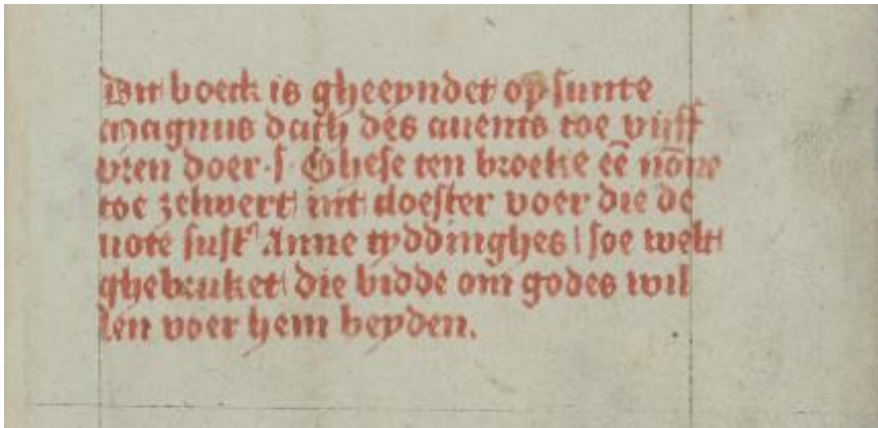 Dit boeck is gheeyndet op sunte
Magnus dach des auents toe vijff
vren doer · s Ghese ten broeke ēē nōne
toe zelwert int cloester voer die de
uote sust' Anne tyddinghes soe welt
ghebruket die bidde om godes wil
len voer hem beyden.